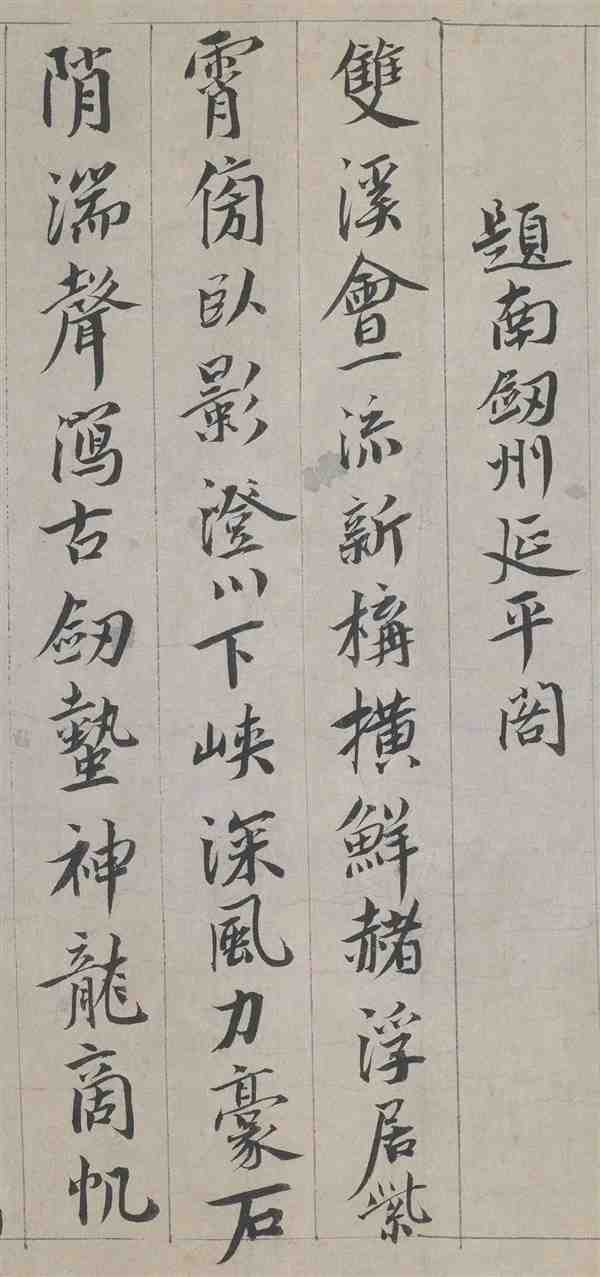 題南劔州延平閣
雙溪會一流新構橫鮮赭浮居紫
霄傍臥影澄川下峽深風力豪石
陗湍聲瀉古劔蟄神龍商帆